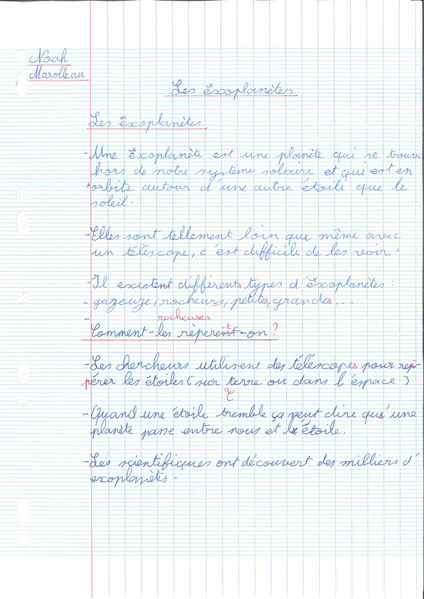 Noah
Marolleau
Les éxoplanètes
Les éxoplanètes
-Une éxoplanète est une planète qui se trouve
hors de notre système solaire et qui est en
orbite autour d'une autre étoile que le
soleil.
-Elles sont tellement loin que même avec
un télescope, c'est difficile de les voir.
-Il existent différents types d'éxoplanètes:
gazeuze, rocheurs, petites, grandes...
rocheuses
Comment-les répèrent-on?
-Les chercheurs utilisent des télescopes pour re
pérer les étoiles (sur terre ou dans l'espace)
-Quand une étoile tremble ça peut dire qu'une
planète passe entre nous et l'étoile.
-Les scientifiques ont découvert des milliers d'
exoplanètes.